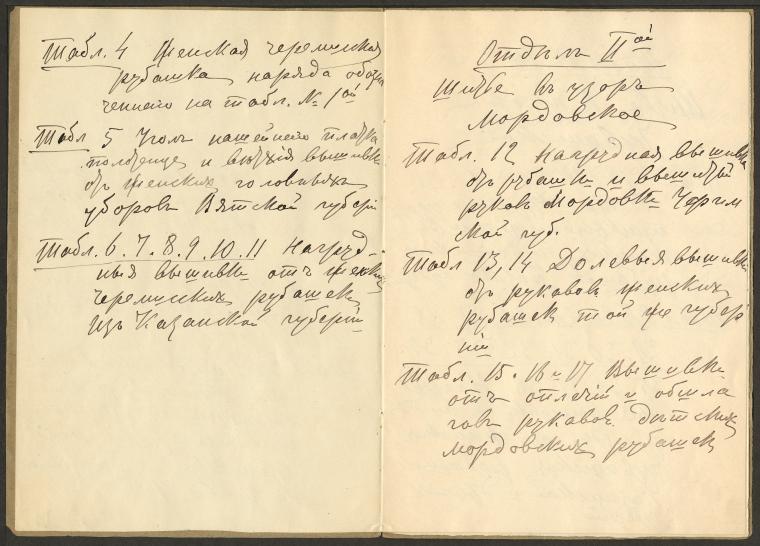 Табл. 4 Женская черемисская
рубашка наряда обозна
ченнаго на табл. № 1ой
Табл 5 Уголъ нашейнаго платка
полотенце и вышивки
съ женскихъ головныхъ
уборовъ Вятской губерніи
Табл. 6. 7. 8. 9. 10. 11 Нагруд-
ныя вышивки отъ женскихъ
черемисскихъ рубашекъ
изъ Казанской губерніи
Отдѣлъ IIой
Шитье въ узоръ
Мордовское
Табл. 12 Нагрудная вышивка
съ рубашки и вышитый
рукавъ Мордовки
ской губ.
Табл 13, 14 Долевыя вышивки
съ рукавовъ женскихъ
рубашекъ той же губер
ніи
Табл. 15. 16 и 17 Вышивки
отъ оплечій и обшла
говъ рукавовъ дѣтскихъ
мордовскихъ рубашекъ